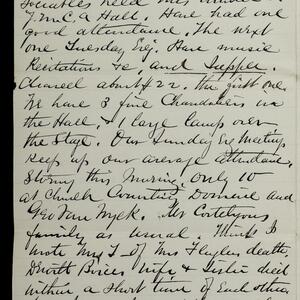 Sociables held
Y.M.C.A Hall. Have had one
good attendance. The next
one Tuesday Evg. Have music
Recitations &c, and Supper.
Cleared about $22. the first one.
We have 3 fine Chandeliers in
the Hall & 1 large lamp over
the Stage. Our Sunday Evg Meetings
keep up our average attendance.
Stormy this Morning. Only 10
at Church Counting Domine and
Geo Van Wyck. Mr Cortelyous
family as usual. Think I
wrote My T of Mrs Flaglers death,
Dewitt Brices wife & Sister died
within a short time of Each other